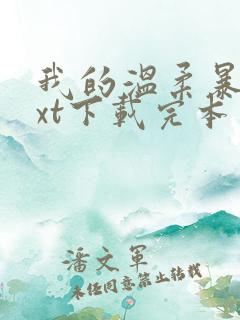 我的温柔暴
xt下载完本
潘文军
未经同意禁止转载